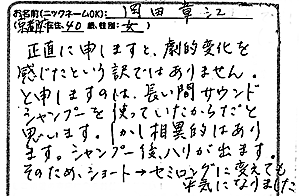 お名前(ニックネームOK): 岡田章江
在住、40歳、性別: 女
正直に申しますと、劇的変化を
感じたという訳ではありません。
と申しますのは、長い間サウンド
シャンプーを使っていたからだと
思います。しかし相異的はあり
ます。シャンプー後、ハリが出ます。
そのため、ショート→セミロングに変えても
平気になりました